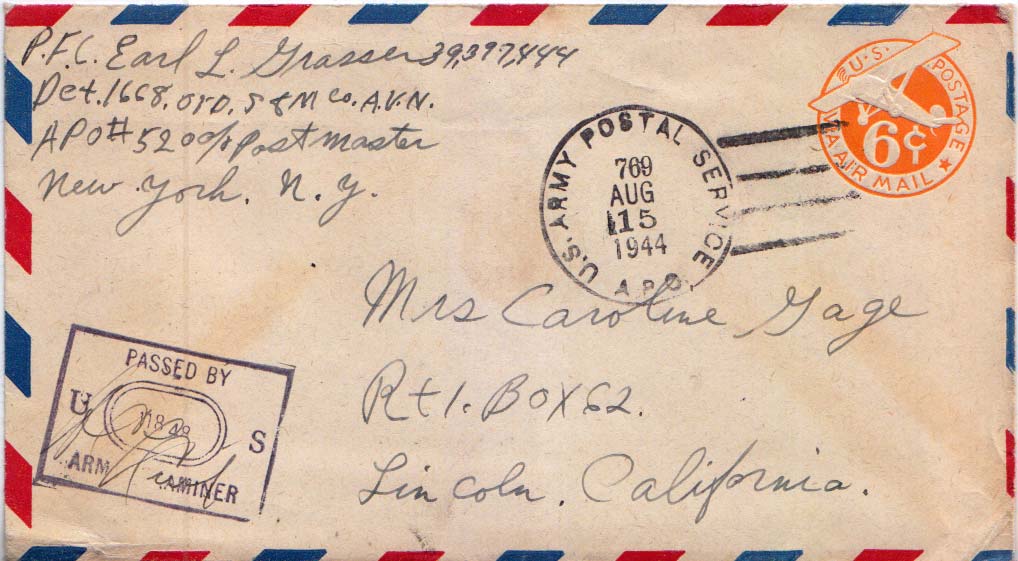 P.F.C. Earl L. Grasser 39,397,444
Det. 1668. ORD. S & M Co. A.V.N.
APO # 520 c/o Post master
New York. N. Y.
U.S. POSTAGE
6¢
VIA AIR MAIL
U.S. ARMY POSTAL SERVICE
769
AUG
15
1944
A P O
Mrs Caroline Gage
Rt 1. Box 62.
Lincoln. California.
PASSED BY
U S
ARM AMINER